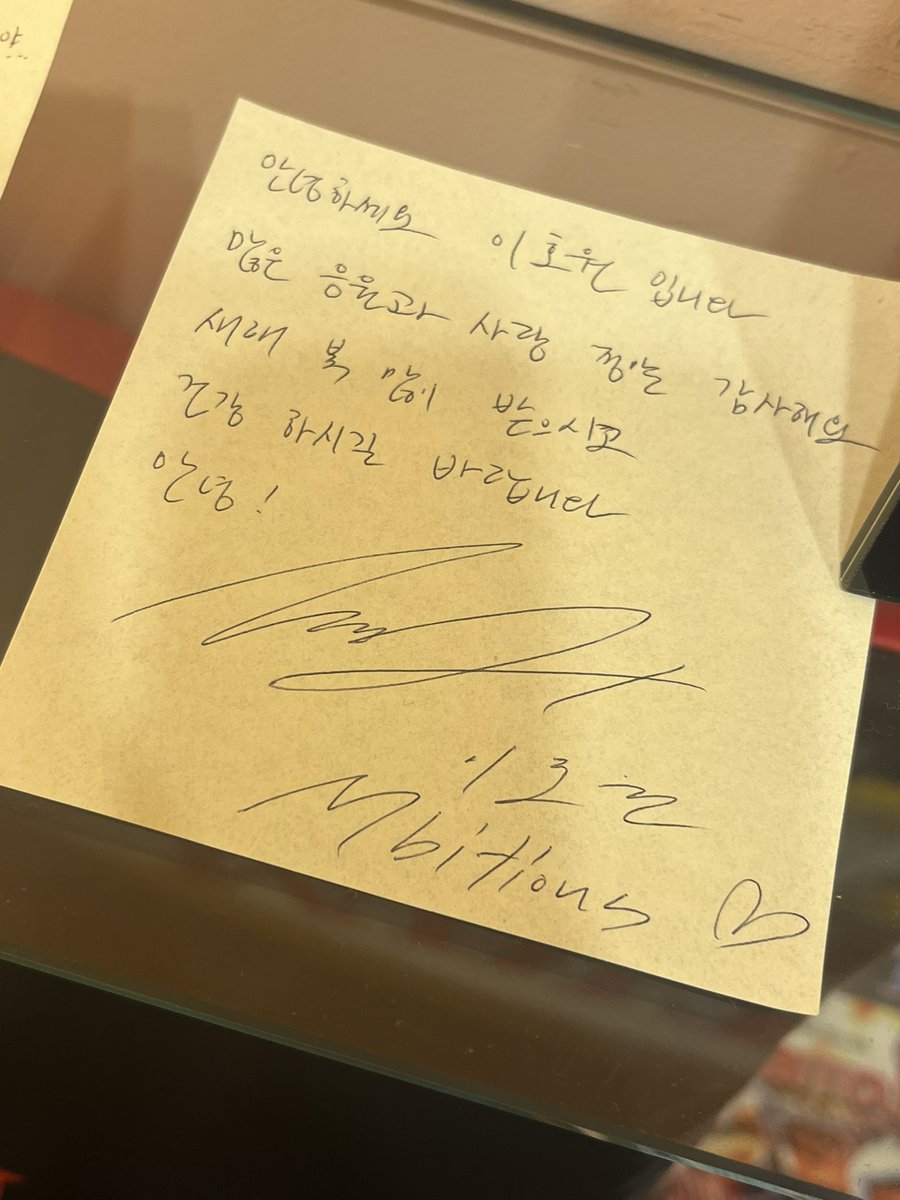 안녕하세요 이호원 입니다
많은 응원과 사랑 정말 감사해요
새해 복 많이 받으시고
건강 하시길 바랍니다
안녕!
이호원
Mbitious